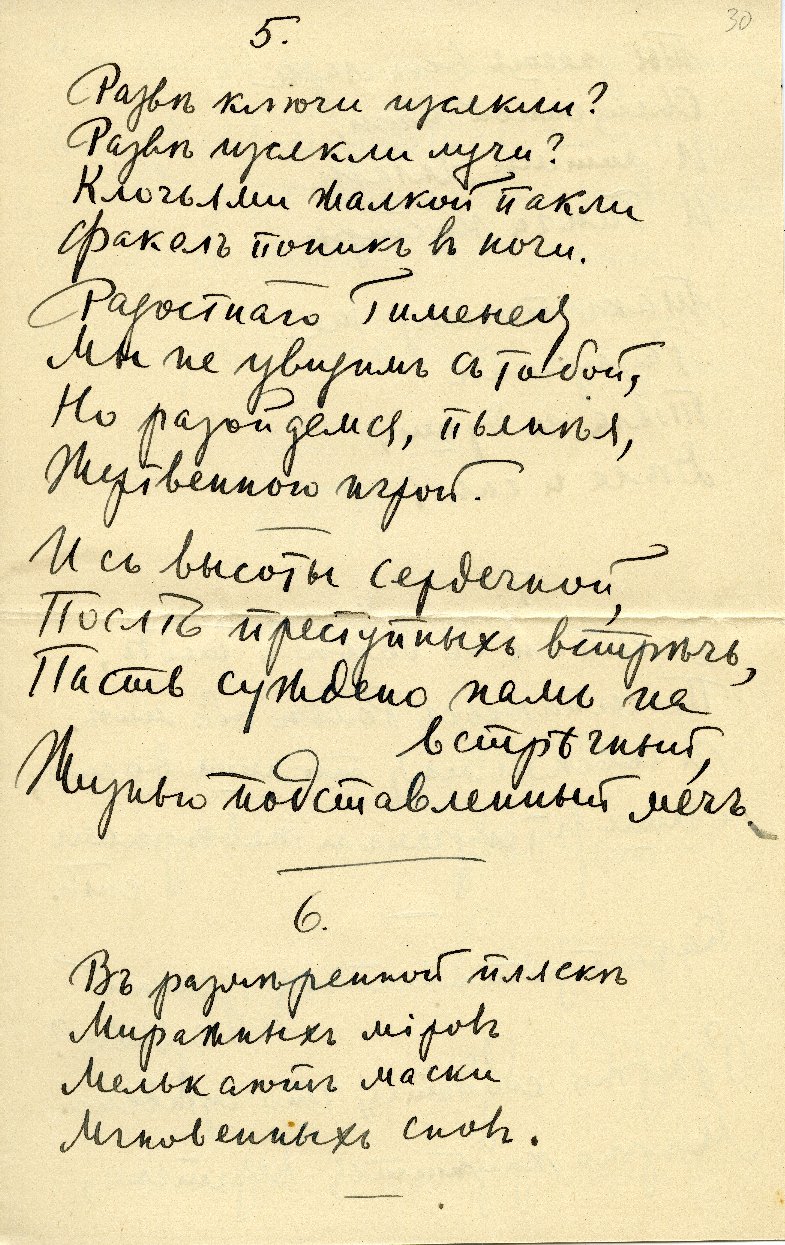 30
5.
Развѣ ключи изсякли?
Развѣ изсякли лучи?
Клочьями жалкой пакли
Факелъ поникъ въ ночи.
Радостнаго Гименея
Мы не увидимъ съ тобой,
Но разойдемся, пьянѣя,
Жертвенною игрой.
И съ высоты сердечной,
Послѣ преступныхъ встрѣчъ,
Пасть суждено намъ на
встрѣчный,
Жизнью подставленный мечъ.
6.
Въ размѣренной пляскѣ
Миражныхъ мiровъ
Мелькаютъ маски
Мгновенныхъ сновъ.